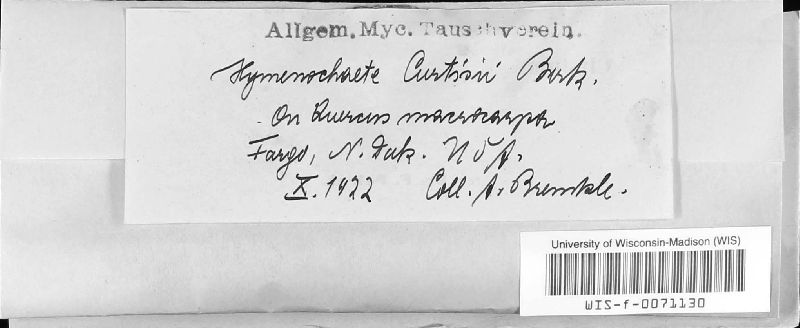 Allgem. Myc. Tauschverein.
Hymenochaete Curtisii Berk.
On Quercus macrocarpa
Fargo, N. Dak. U S A.
X. 1922 Coll. A. Brenckle.
University of Wisconsin-Madison (WIS)
WIS-f-0071130